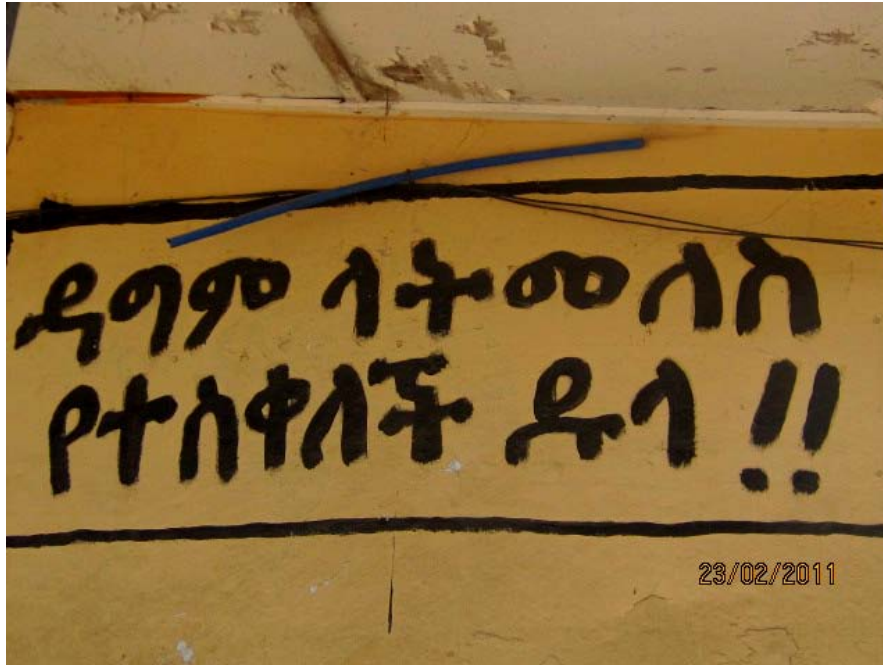 ዳግም ላትመለስ
የተሰቀለች ዱላ !!
23/02/2011